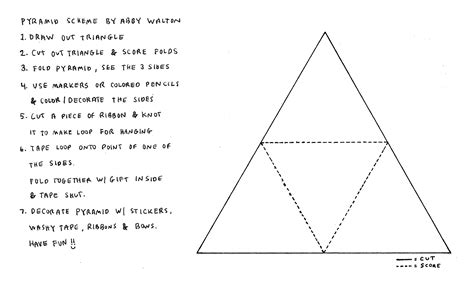 PYRAMID SCHEME BY ABBY WALTON
1. DRAW OUT TRIANGLE
2. CUT OUT TRIANGLE & SCORE FOLDS
3. FOLD PYRAMID, SEE THE 3 SIDES
4. USE MARKERS OR COLORED PENCILS
& COLOR/DECORATE THE SIDES
5. CUT A PIECE OF RIBBON & KNOT
IT TO MAKE LOOP FOR HANGING
6. TAPE LOOP ONTO POINT OF ONE OF
THE SIDES.
FOLD TOGETHER W/ GIFT INSIDE
& TAPE SHUT.
7. DECORATE PYRAMID W/ STICKERS,
WASHY TAPE, RIBBONS & BOWS.
HAVE FUN!!
= CUT
= SCORE